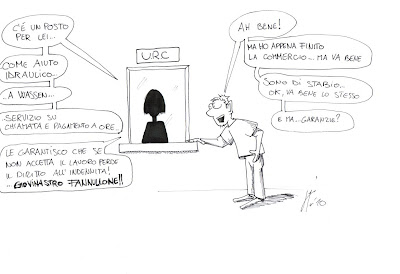 C'È UN POSTO
PER LEI...
COME AIUTO
IDRAULICO...
...A WASSEN...
SERVIZIO SU
CHIAMATA E PAGAMENTO A ORE.
LE GARANTISCO CHE SE
NON ACCETTA IL LAVORO PERDE
IL DIRITTO ALL'INDENNITÀ!
...GIOVINASTRO FANNULLONE!!
U.R.C
AH BENE!
MA HO APPENA FINITO
LA COMMERCIO... MA VA BENE
SONO DI STABIO...
OK, VA BENE LO STESSO
E MA... GARANZIE?